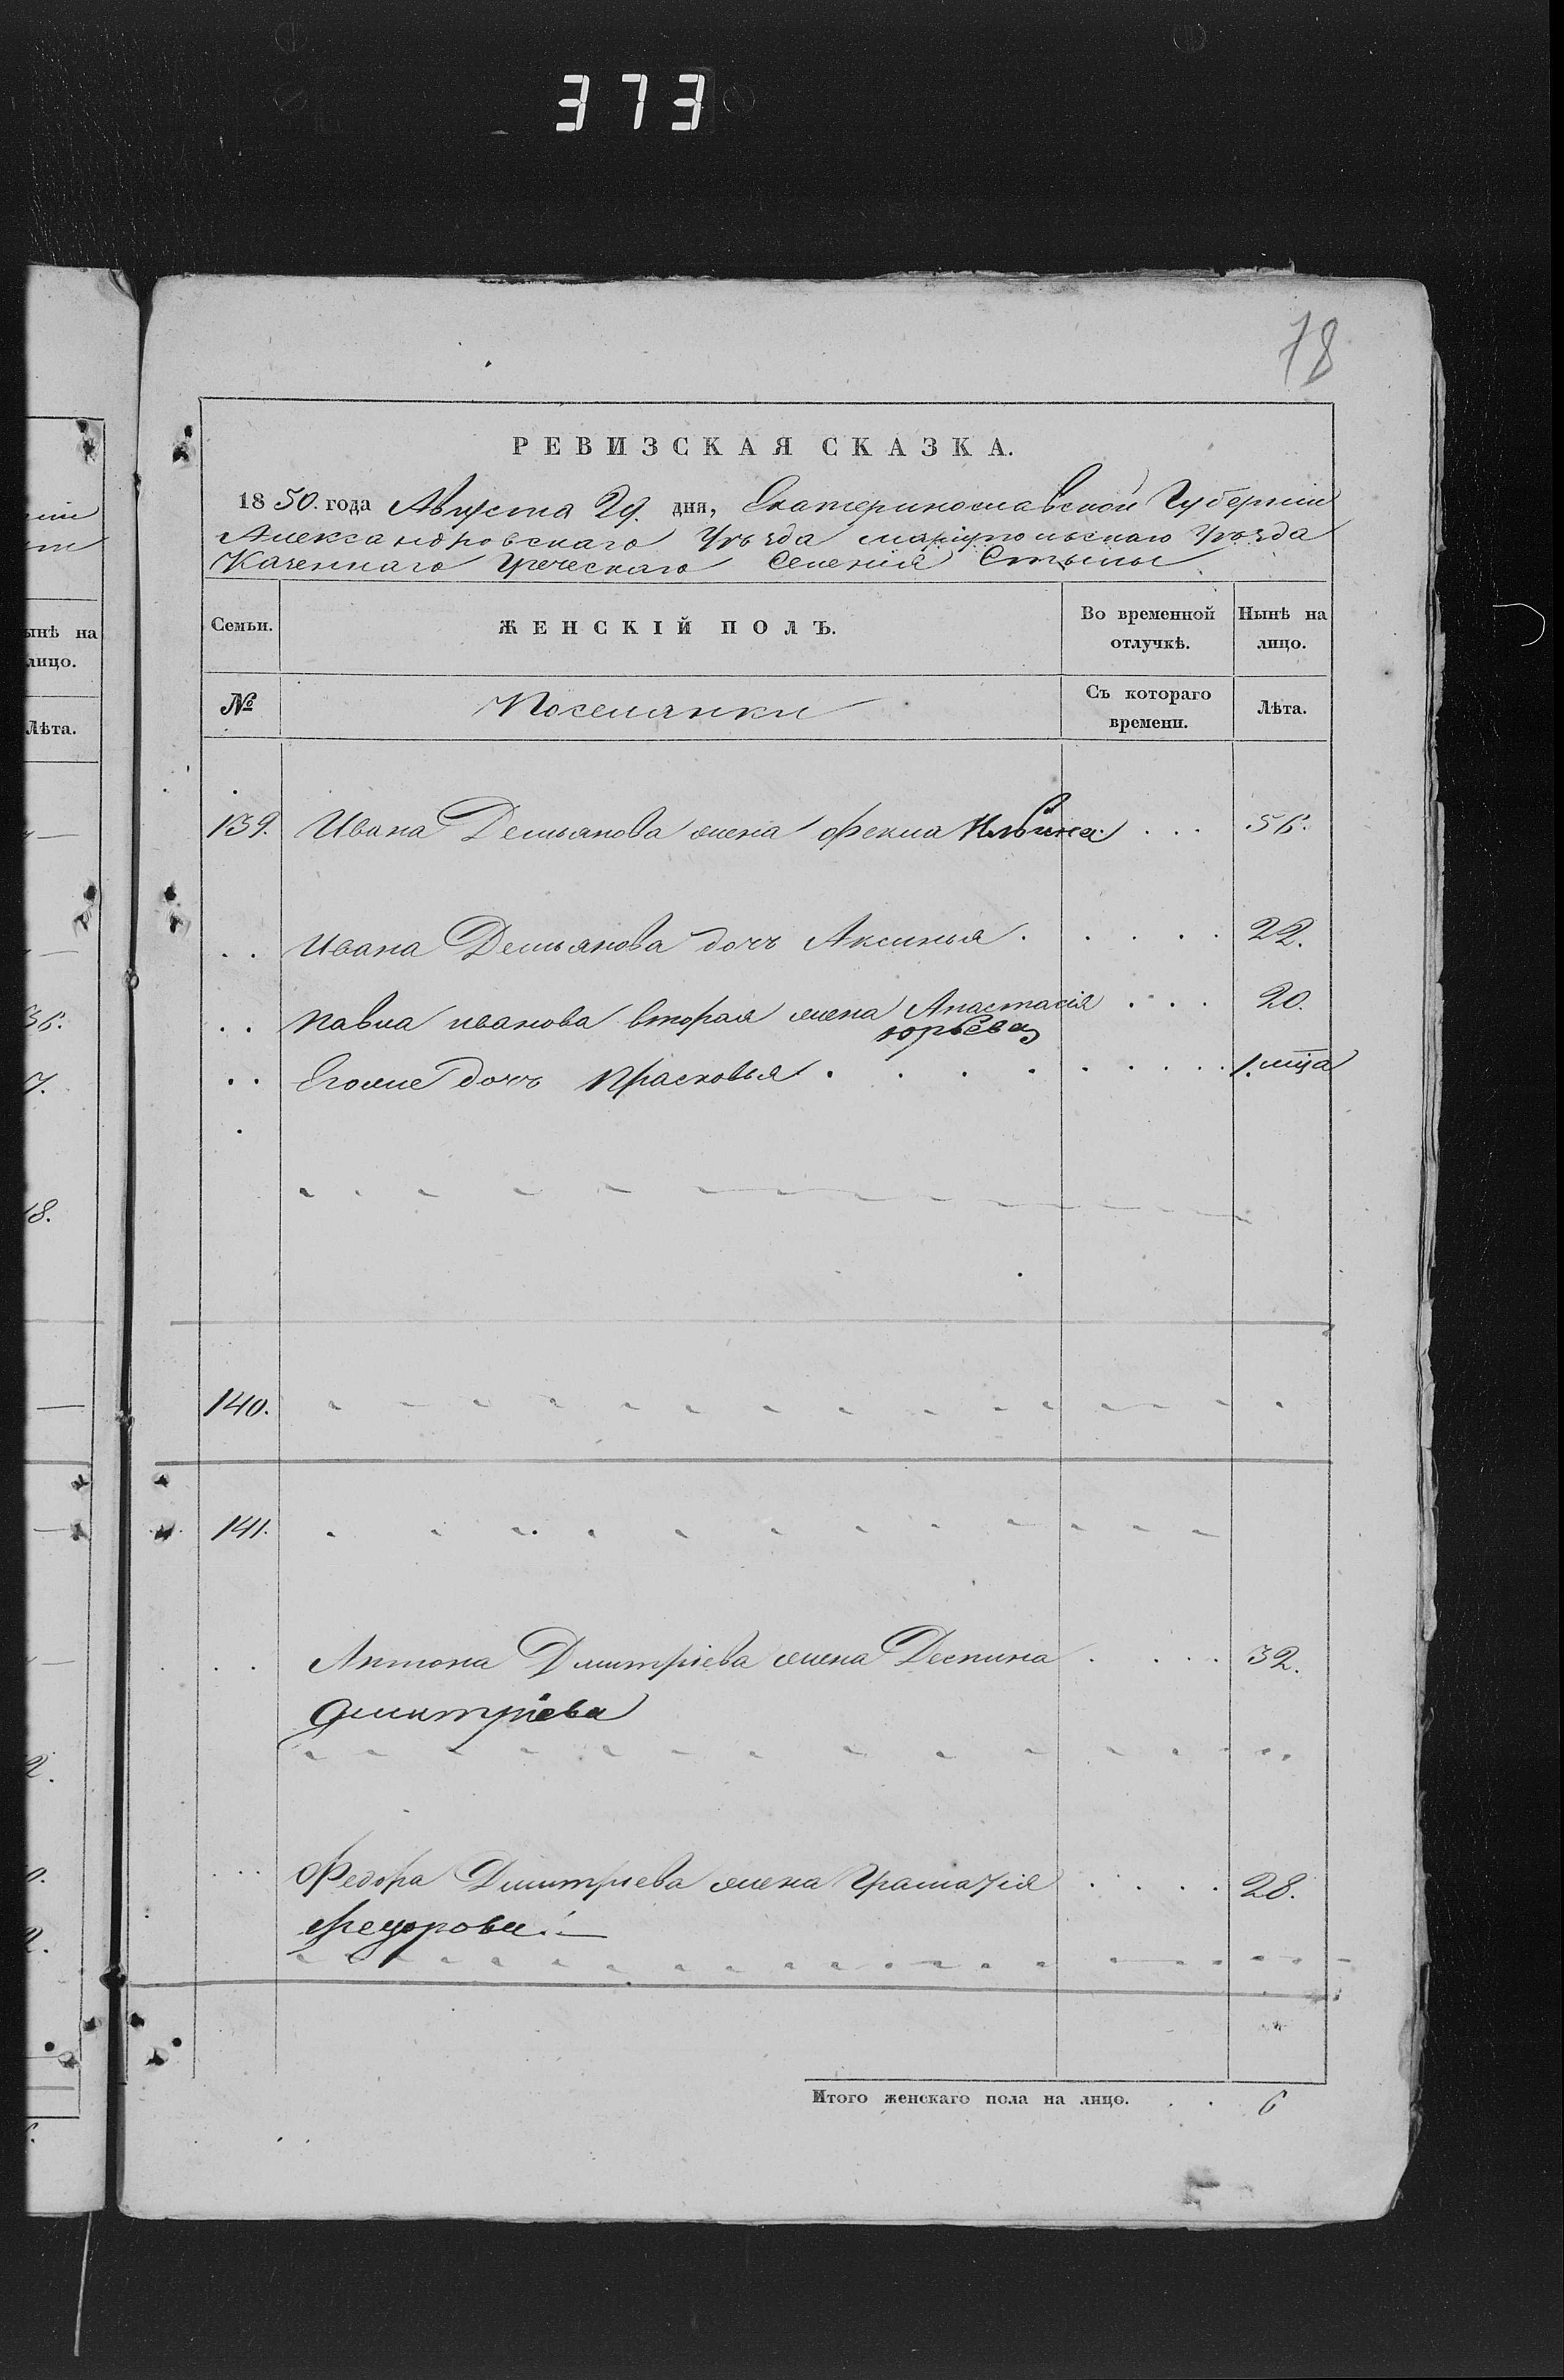 373
78
РЕВИЗСКАЯ СКАЗКА.
1850. года Августа 29. дня, Екатеринославской Губернии
Александровскаго Уѣзда мариупольскаго Уѣзда
Казеннаго Греческаго Селенiя Стылы
Семьи. ЖЕНСКІЙ ПОЛЪ. Во временной отлучкѣ. Нынѣ на лицо.
№ Поселянки Съ котораго времени. Лѣта.
139. Ивана Демьянова жена Фекла Ильина . . . 56.
. . Ивана Демьянова дочь Аксинья . . . . . 22.
. . Павла иванова вторая жена Анастасiя . . . 20.
юрьева
. . Егоже дочь Прасковья . . . . . . . . 1. мца
140.
141.
. . Антона Дмитрiева жена Деспина . . . . 32.
Дмитрiева
. . . Федора Дмитриева жена . . . . 28.
Федорова
Итого женскаго пола на лицо. . . 6